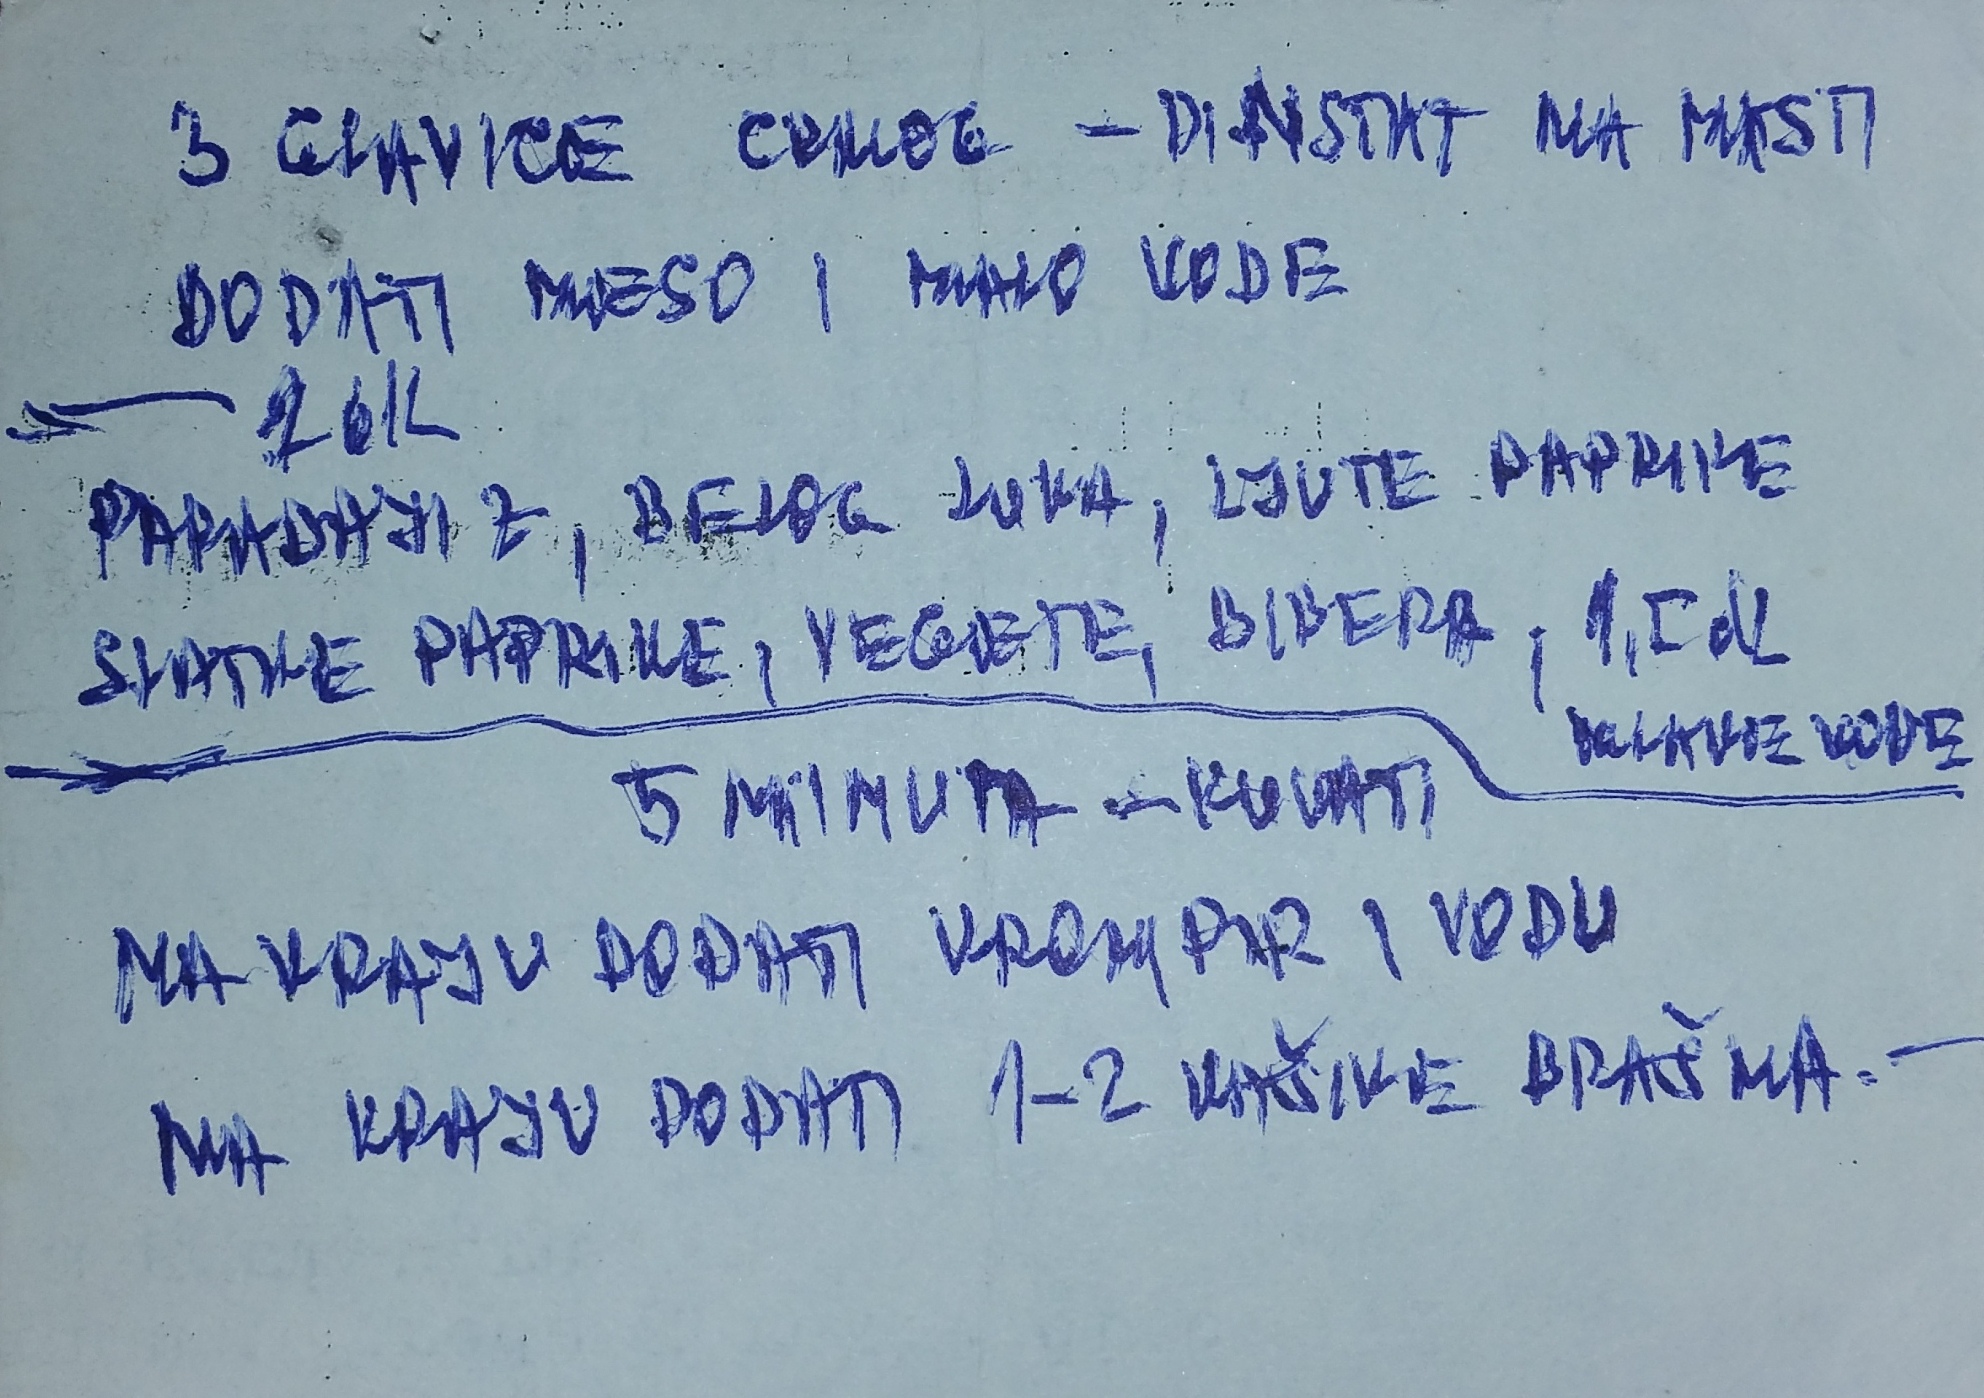 3 GLAVICE CRNOG - DINSTAT NA MASTI
DODATI MESO I MALO VODE
PARADAJZ, BELOG LUKA, LJUTE PAPRIKE
SLATKE PAPRIKE, VEGETE, BIBERA, 1,5 dL
MLAKE VODE
5 MINUTA - KUVATI
NA KRAJU DODATI KROMPIR I VODU
NA KRAJU DODATI 1-2 KAŠIKE BRAŠNA.-